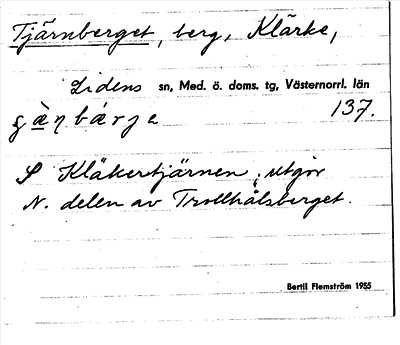 Tjärnberget, berg, Klärke,
Lidens sn, Med. ö. doms. tg, Västernorrl. län
137.
S Kläkentjärnen; utgör
N. delen av Trollhålsberget.
Bertil Flemström 1955